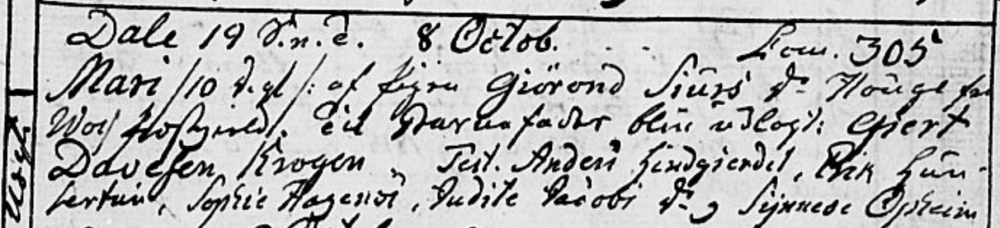 Dale 19 S. n. T. 8 Octob. Com. 305
Mari /10 d. gl/: af Giörond Siurs Dr Houge fra
Woss Til Barnefader blev udlagt: Giert
Davesen Krogen Test. Anders Lindgierdet, Erik Hun-
Sophie Hagens, Judite Jacobs Dr Synneve Opheim